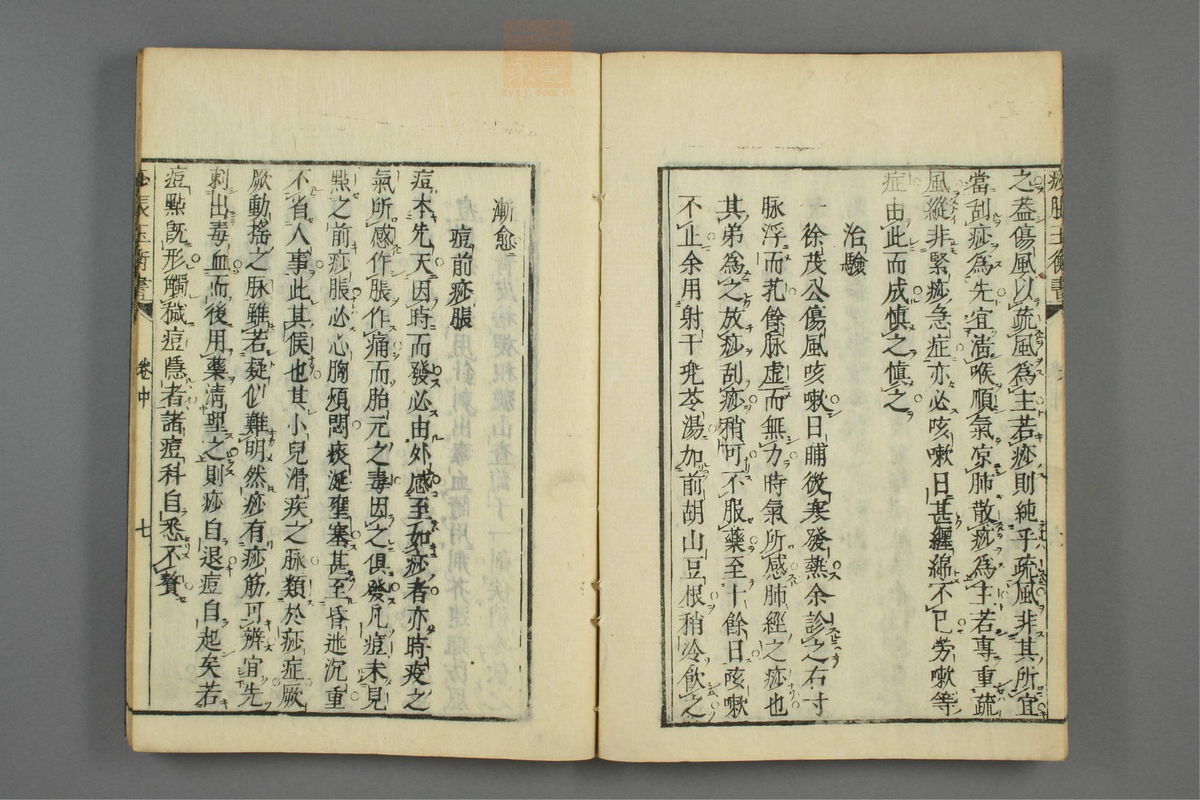 痧脹玉衡書
之蓋傷風以疏風為主若痧則純乎疏風非其所宜
當刮痧為先宜清喉順氣凉肺散痧為主若專重疏
風縱非緊痧急症亦必咳嗽日甚纏綿不已勞嗽等
症由此而成慎之慎之
治驗
一徐茂公傷風咳嗽日晡微寒發熱余診之右寸
脉浮而芤餘脉虛而無力時氣所感肺經之痧也
其弟為之放痧刮痧稍可不服藥至十餘日咳嗽
不止余用射干兠苓湯加前胡山豆根稍冷飲之
漸愈
痘前痧脹
痘本先天因時而發必由外感至如痧者亦時疫之
氣所感作脹作痛而胎元之毒因之俱發凡痘未見
點之前痧脹必心胸煩悶痰涎壅塞甚至昏迷沉重
不省人事此其候也其小兒滑疾之脉類於痧症厥
厥動搖之脉雖若疑似難明然痧有痧筋可辨宜先
刺出毒血而後用藥清理之則痧自退痘自起矣若
痘點旣形觸穢痘隱者諸痘科自悉不贅
痧脹玉衡書 卷中 七